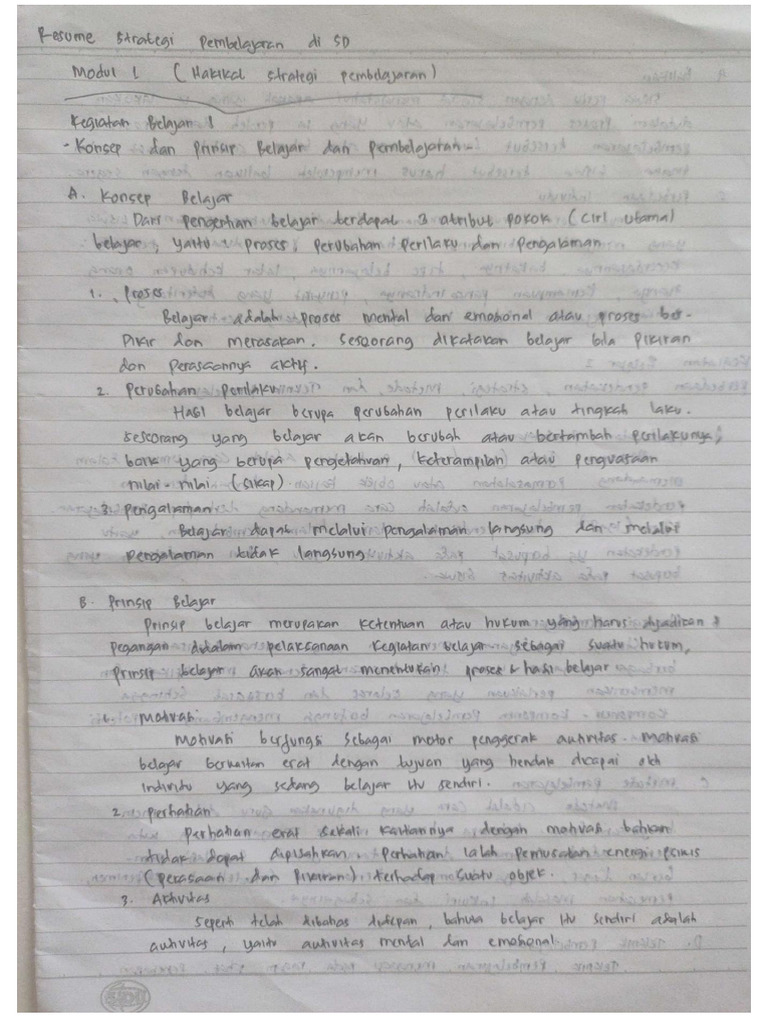 Resume Strategi Pembelajaran di SD
Modul 1 (Hakikat strategi pembelajaran)
Kegiatan Belajar 1
- Konsep dan Prinsip Belajar dan Pembelajaran -
A. Konsep Belajar
Dari pengertian belajar terdapat 3 atribut pokok (ciri utama)
belajar, yaitu : proses, perubahan perilaku dan Pengalaman
1. Proses
Belajar adalah proses mental dan emosional atau proses ber-
Pikir dan merasakan. Seseorang dikatakan belajar bila pikiran
dan Perasaannya aktif.
2. Perubahan perilaku
Hasil belajar berupa perubahan perilaku atau tingkah laku.
seseorang yang belajar akan berubah atau bertambah perilakunya,
baik yang berupa pengetahuan, (keterampilan) atau penguasaan
nilai-nilai (sikap).
3. Pengalaman
Belajar dapat melalui pengalaman langsung dan melalui
pengalaman tidak langsung
B. Prinsip Belajar
Prinsip belajar merupakan ketentuan atau hukum yang harus dijadikan
pegangan didalam pelaksanaan kegiatan belajar. sebagai suatu hukum,
Prinsip belajar akan sangat menentukan proses & hasil belajar
1. Motivasi
Motivasi berfungsi sebagai motor penggerak aktivitas. Motivasi
belajar berkaitan erat dengan tujuan yang hendak dicapai oleh
individu yang sedang belajar itu sendiri.
2. perhatian
perhatian erat sekali kaitannya dengan motivasi bahkan
tidak dapat dipisahkan. Perhatian ialah pemusatan energi psikis
(perasaan dan pikiran) terhadap suatu objek.
3. Aktivitas
seperti telah dibahas didepan, bahwa belajar itu sendiri adalah
aktivitas, yaitu aktivitas mental dan emosional